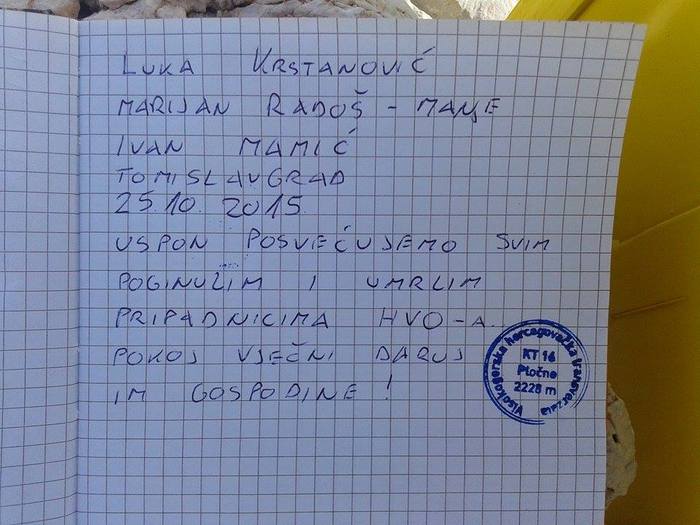 LUKA KRSTANOVIĆ
MARIJAN RADOŠ - MANJE
IVAN MAMIĆ
TOMISLAVGRAD
25.10. 2015.
USPON POSVEĆUJEMO SVIM
POGINULIM I UMRLIM
PRIPADNICIMA HVO-A.
POKOJ VJEČNI DARUJ
IM GOSPODINE !
Visokogorska hercegovačka transverzala
KT 16
Pločno
2228 m